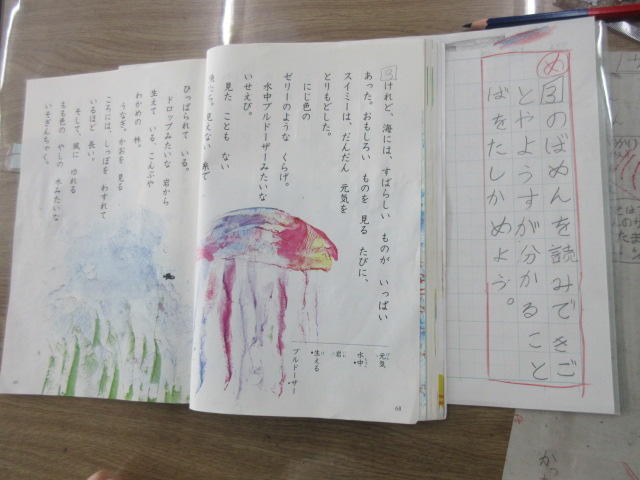 め
3のばめんを読みできご
とやようすが分かること
ばをたしかめよう。
3
けれど、海には、すばらしい ものが いっぱい
あった。おもしろい ものを 見る たびに、
スイミーは、だんだん 元気を
とりもどした。
にじ色の
ゼリーのような くらげ。
水中ブルドーザーみたいな
いせえび。
見た ことも ない
見えない 糸で
元気
水中
岩
生える
ブルドーザー
68
ひっぱられて いる。
ドロップみたいな 岩から
生えて いる、こんぶや
わかめの 林。
うなぎ。かおを 見る
ころには、しっぽを わすれて
いるほど 長い。
そして、風に ゆれる
もも色の やしの 木みたいな
いそぎんちゃく。